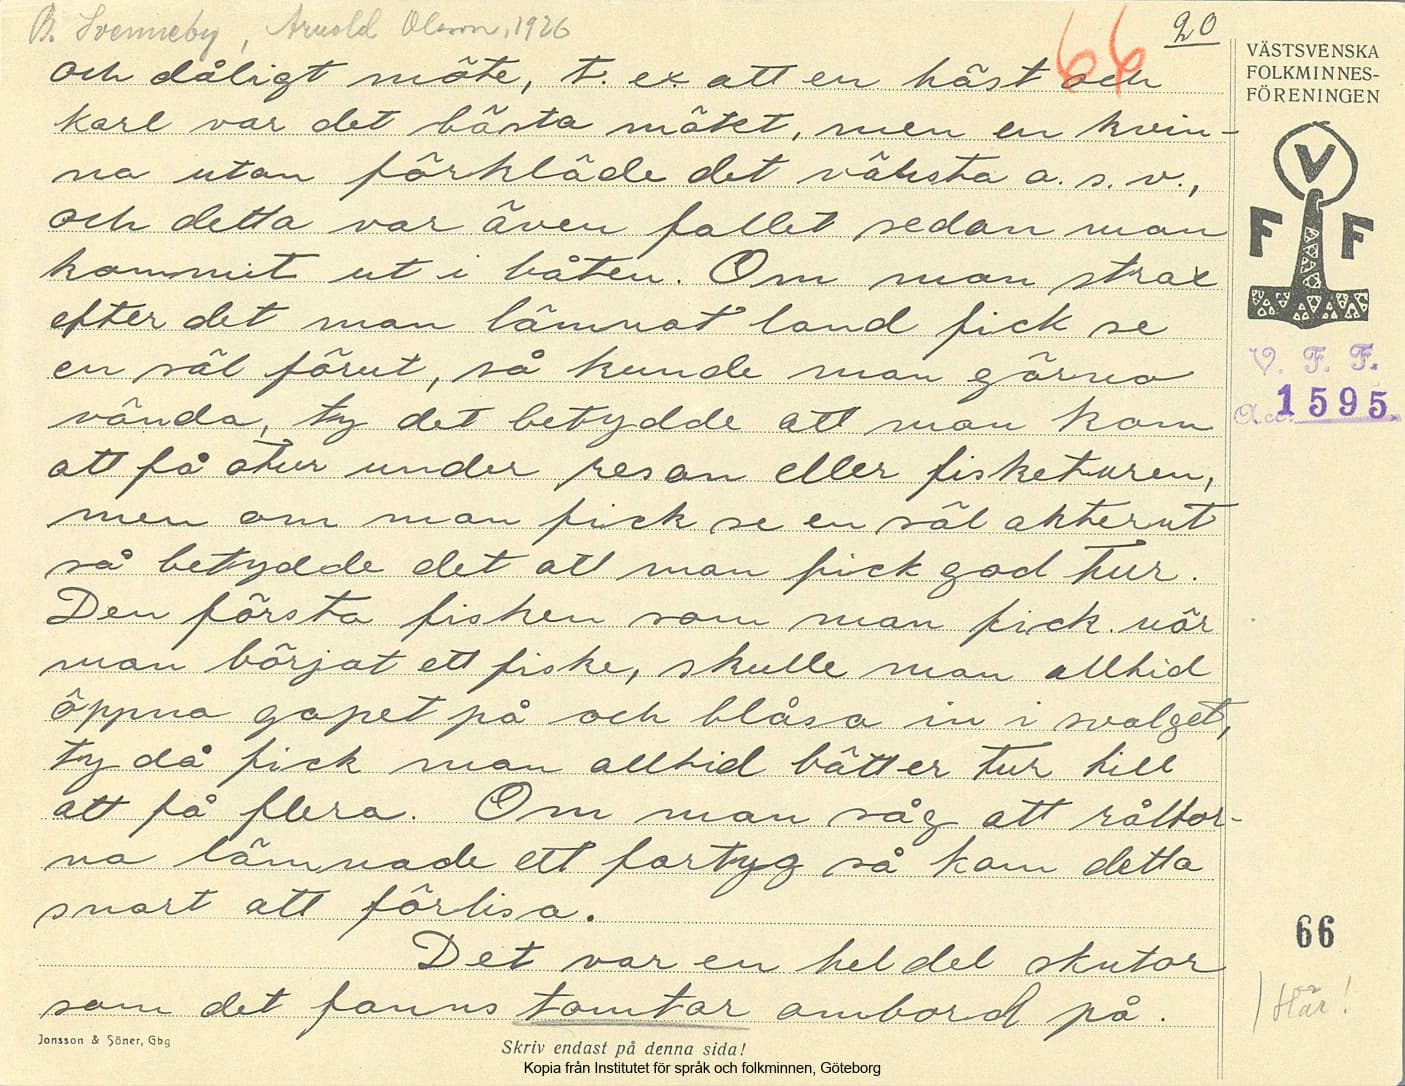 B. Svenneby, Arnold Olsson, 1926
66
20
och dåligt möte, t. ex att en häst och
karl var det bästa mötet, men en kvin-
na utan förkläde det värsta o. s. v.,
och detta var även fallet sedan man
kommit ut i båten. Om man strax
efter det man lämnat land fick se
en säl förut, så kunde man görna
vända, ty det betydde att man kom
att få otur under resan eller fisketuren,
men om man fick se en säl akterut
så betydde det att man fick god tur.
Den första fisken som man fick när
man börjat ett fiske, skulle man alltid
öppna gapet på och blåsa in i svalget,
ty då fick man alltid bätter tur till
att få flera. Om man såg att råttor-
na lämnade ett fartyg så kom detta
snart att förlisa.
Det var en hel del skutor
som det fanns tomtar ombord på.
VÄSTSVENSKA
FOLKMINNES-
FÖRENINGEN
V
F F
V. F. F.
Acc. 1595.
66
Här!
Jonsson & Söner, Gbg
Skriv endast på denna sida!
Kopia från Institutet för språk och folkminnen, Göteborg